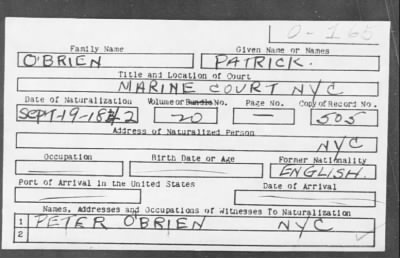 O-165
Family Name Given Name or Names
O'BRIEN PATRICK.
Title and Location of Court
MARINE COURT NYC
Date of Naturalization Volume or Bundle No. Page No. Copy of Record No.
SEPT-19-1842 20 — 505
Address of Naturalized Person
NYC
Occupation Birth Date or Age Former Nationality
ENGLISH.
Port of Arrival in the United States Date of Arrival
Names, Addresses and Occupations of Witnesses To Naturalization
1 PETER O'BRIEN NYC
2